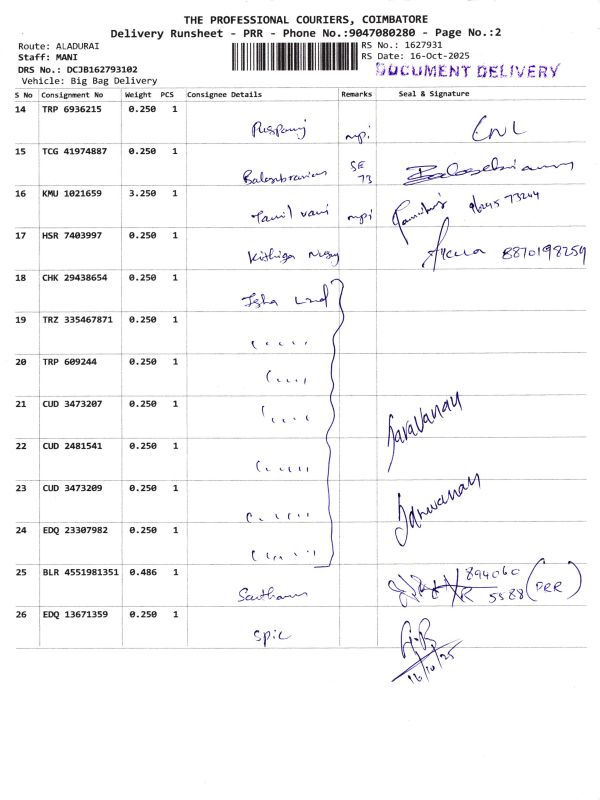 THE PROFESSIONAL COURIERS, COIMBATORE
Delivery Runsheet - PRR - Phone No.:9047080280 - Page No.:2
Route: ALADURAI RS No.: 1627931
Staff: MANI RS Date: 16-Oct-2025
DRS No.: DCJB162793102 DOCUMENT DELIVERY
Vehicle: Big Bag Delivery
S No Consignment No Weight PCS Consignee Details Remarks Seal & Signature
14 TRP 6936215 0.250 1 mpi
15 TCG 41974887 0.250 1 SE 73
16 KMU 1021659 3.250 1 Tamil vani mpi 96245 73244
17 HSR 7403997 0.250 1 8870198259
18 CHK 29438654 0.250 1 Isha
19 TRZ 335467871 0.250 1
20 TRP 609244 0.250 1
21 CUD 3473207 0.250 1 Saravanan
22 CUD 2481541 0.250 1
23 CUD 3473209 0.250 1
24 EDQ 23307982 0.250 1
25 BLR 4551981351 0.486 1 894060 5588 (PRR)
26 EDQ 13671359 0.250 1 SPIC
16/10/25